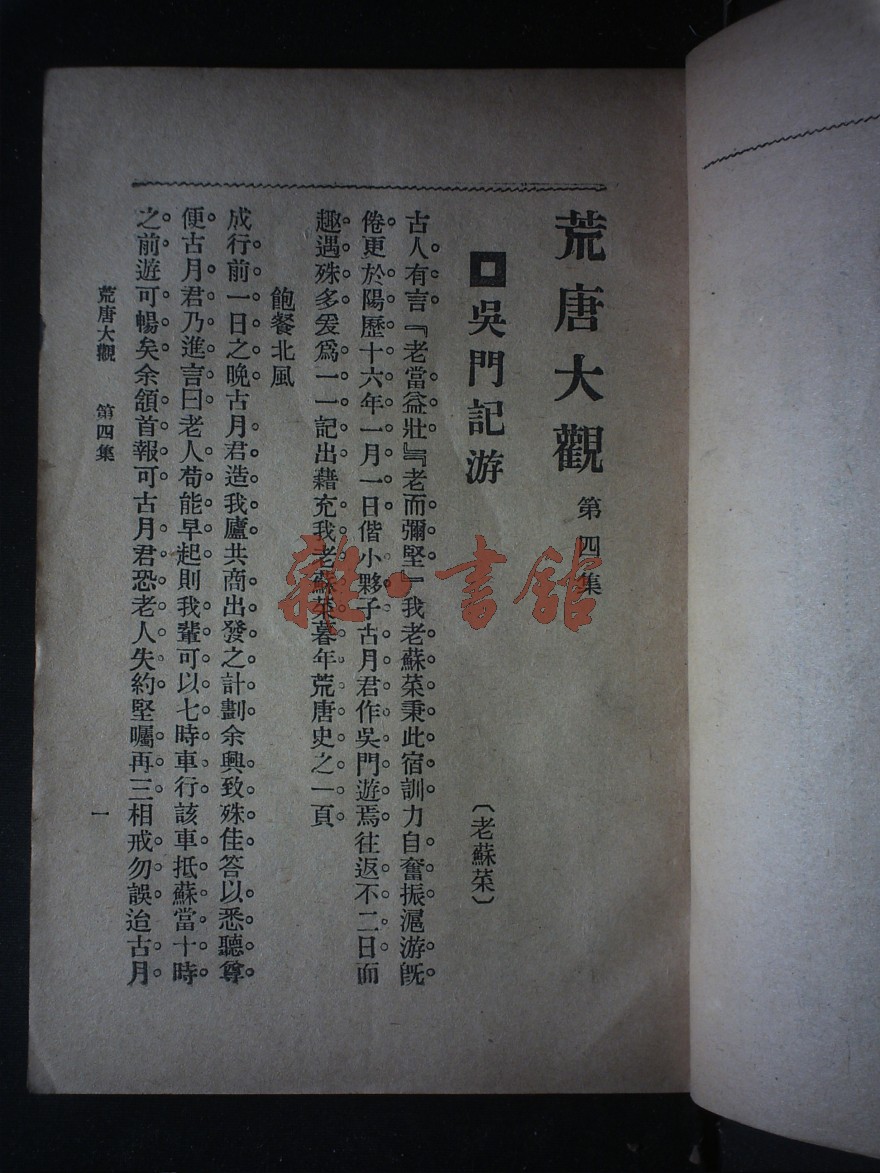 荒唐大觀 第四集
吳門記游
（老蘇菜）
古人有言『老當益壯』『老而彌堅』我老蘇菜秉此宿訓力自奮振滬游旣
倦更於陽歷十六年一月一日偕小夥子古月君作吳門遊焉往返不二日而
趣遇殊多爰爲一一記出藉充我老蘇菜暮年荒唐史之一頁
飽餐北風
成行前一日之晚古月君造我廬共商出發之計劃余興致殊佳答以悉聽尊
便古月君乃進言曰老人苟能早起則我輩可以七時車行該車抵蘇當十時
之前遊可暢矣余頷首報可古月君恐老人失約堅囑再三相戒勿誤迨古月
荒唐大觀 第四集
一
雜·書館